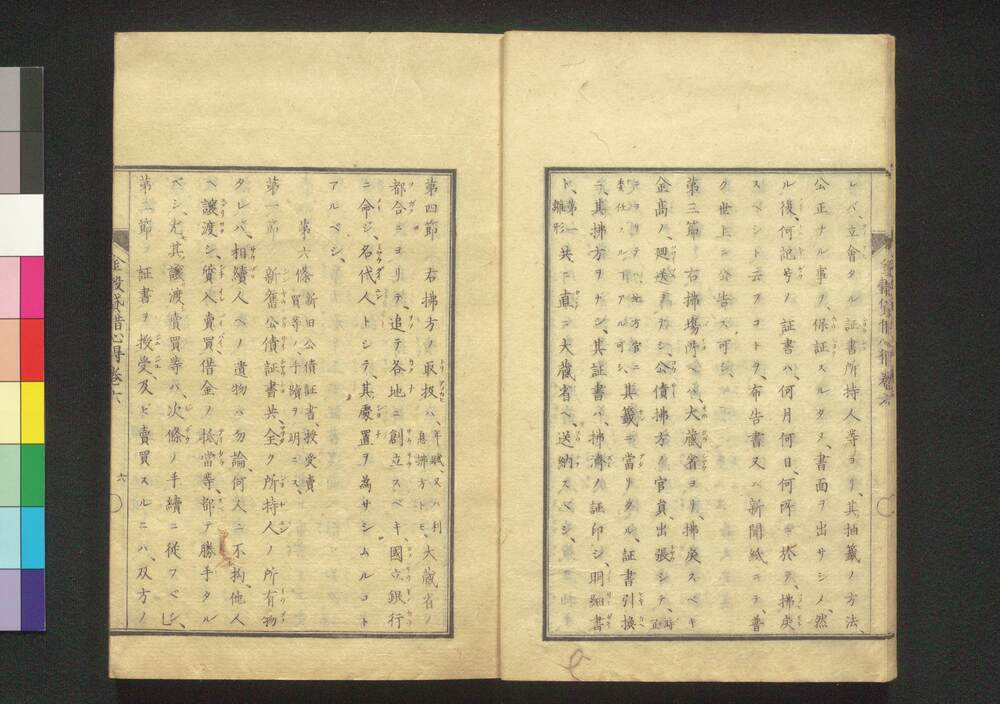 レバ、立會タル、証書所持人等ヨリ、其抽籤ノ方法、
公正ナル事ヲ、保証スルタメ、書面ヲ出サシメ、然
ル後、何記号ノ証書ハ、何月何日、何所ニ於テ、拂戾
スベシト云フコトヲ、布告書又ハ新聞紙ニテ、普
ク世上ニ公告ス可シ、
第三節 右拂塲所ヘハ、大藏省ヨリ、拂戾スベキ
金高ノ廻送ヲナシ、公債拂方ノ官員出張シテ、
其籤ニ當リタル、証書引換
ニ、其拂方ヲナシ、其証書ハ、拂濟ノ証印シ、明細書
ト、第一雛形共ニ直ニ大藏省ヘ送納スベシ、
第四節 右拂方ノ取扱ハ、年賦、又ハ利息拂方トモ、大藏省ノ
都合ニヨリテ、追テ各地ニ創立スベキ、國立銀行
ニ命ジ、名代人トシテ、其處置ヲ為サシムルコト
アルベシ、
第六條 新旧公債証書、授受賣買等ノ手續ヲ明ニス、
第一節 新舊公債証書共、全ク所持人ノ所有物
タレバ、相續人ヘノ遺物ハ勿論、何人ニ不拘、他人
ヘ讓渡シ、質入賣買借金ノ抵當等、都テ勝手タル
ベシ、尤、其讓渡、賣買等ハ、次條ノ手續ニ從フベシ、
第二節 証書ヲ授受、及ビ賣買スルニハ、双方ノ
金穀貸借心得 卷六
六